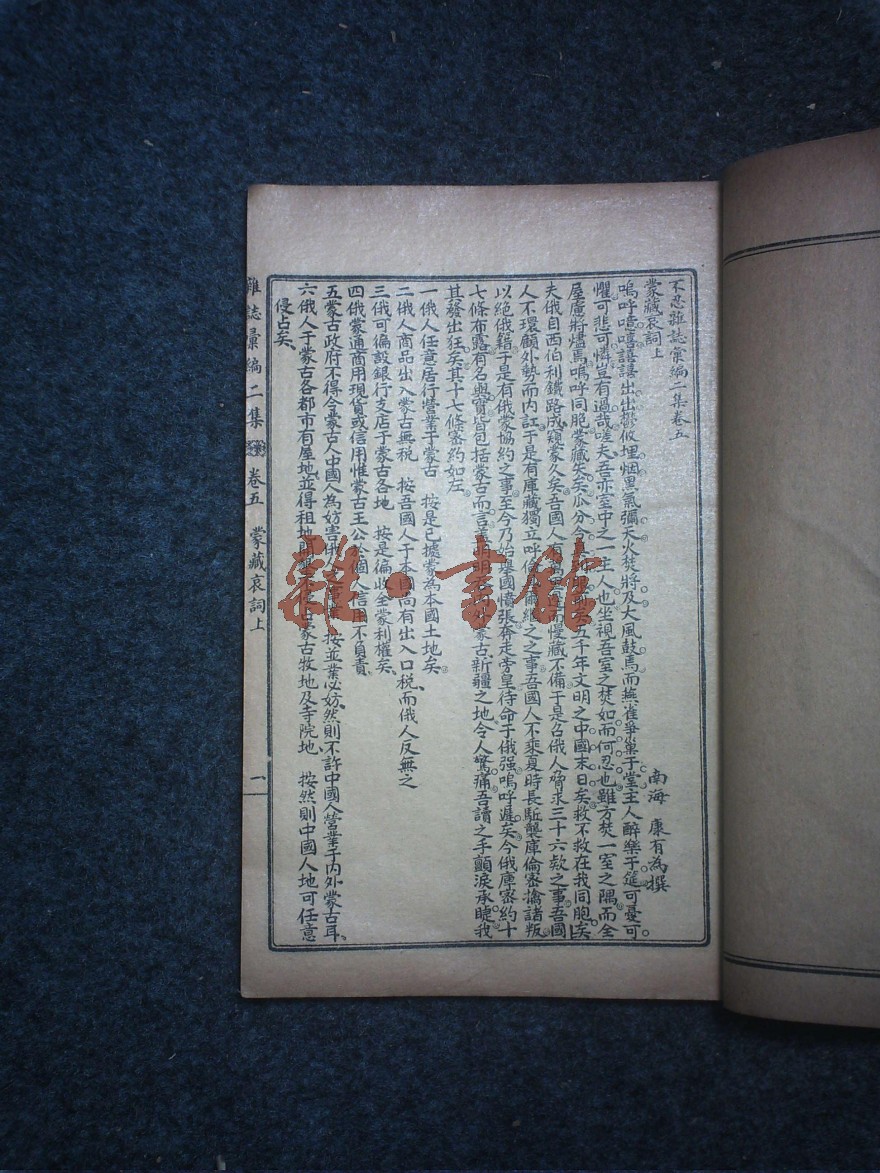 不忍雜誌彙編二集卷五
蒙藏哀詞上
南海 康有為撰
嗚呼噫嘻譆譆出出鬱攸埋烟黑氣彌天火焚將及大風鼓焉而燕雀爭巢于堂主人醉樂于筵可憂可
懼可悲可憐豈有過哉嗟夫吾亦室中之一主人也坐視吾室之焚如而何忍也雖方焚一室之隅而全
屋廬將燼焉嗚呼同胞蒙藏失矣瓜分今
矣五千年文明之中國末日矣救不救在我同胞矣
夫俄自西伯利鐵路成窺蒙久矣吾國人
而慢藏不備于是召俄人脅求三十六欵之事吾國
人不環顧外勢而內訌于是有庫藏獨立呼倫
爾繼之之事吾國人不乘夏時長驅襲庫倫密擒諸叛
以絕俄籍于是有俄蒙協約之事至今乃始舉國憤張奔走旁皇待命于俄强嗚呼遲矣今俄庫密約十
七條布露有名與實皆包括蒙古而言
外蒙古新疆之地令人驚痛吾讀之手顫淚承睫我
其發出狂矣其十七條密約如左
一俄人任意居行營業于蒙古 按是已據蒙為本國土地矣
二俄人商品出入蒙古無稅 按吾國人于本國尚有出入口稅而俄人反無之
三俄可徧設銀行支店于蒙古各地 按是徧收全蒙利權矣
四俄蒙通商用現貨或信用惟蒙古王公於個人信用不負責
五蒙古政府不得令蒙古人中國人為妨害俄人之
按並業必妨然則不許中國人營業于內外蒙古耳
六俄人于蒙古各都市有屋地並得租地開墾
蒙古牧地及寺院地 按然則中國人地可任意
侵占矣
雜誌彙編二集 卷五 蒙藏哀詞上 一
雜·書館